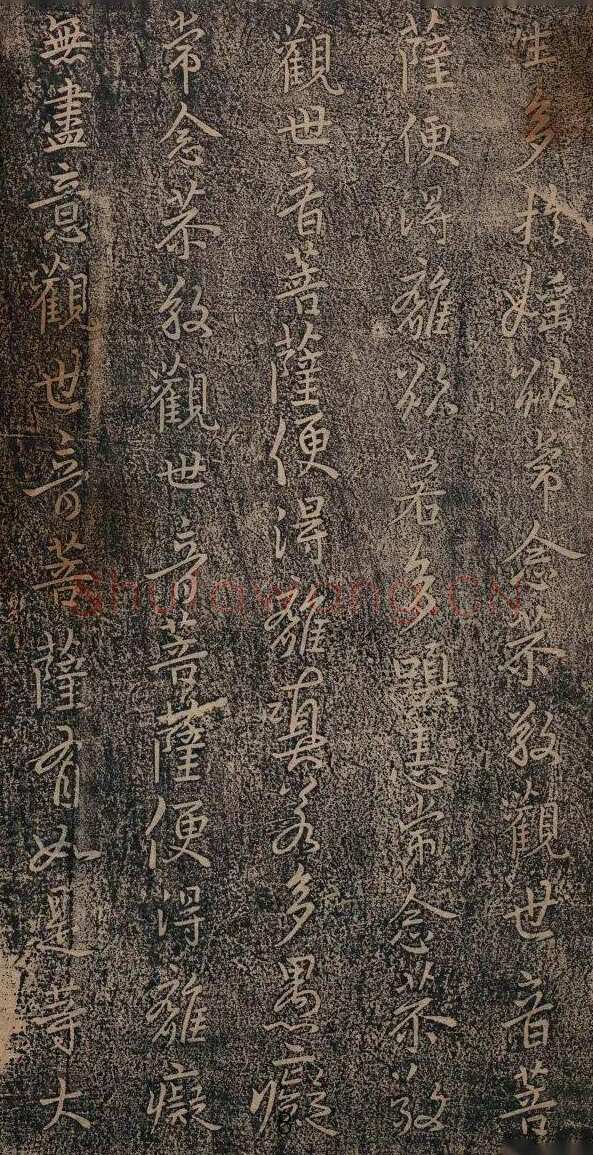 生多於婬欲常念恭敬觀世音菩
薩便得離欲若多瞋恚常念恭敬
觀世音菩薩便得離瞋若多愚癡
常念恭敬觀世音菩薩便得離癡
無盡意觀世音菩薩有如是等大
Shufawang.CN